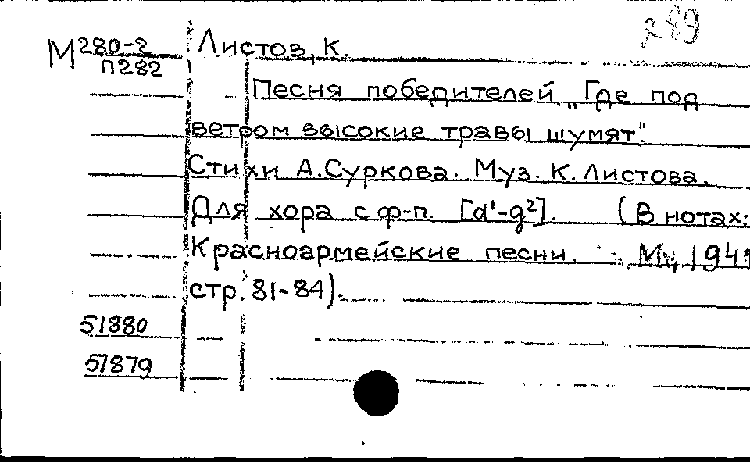 289
М 280-2 Листов, К.
П282
Песня победителей „Где под
ветром высокие травы шумят".
Стихи А.Суркова. Муз. К.Листова.
Для хора с ф-п. [d¹-g²]. (В нотах:
Красноармейские песни. М., 1941
стр. 81-84).
51880
51879